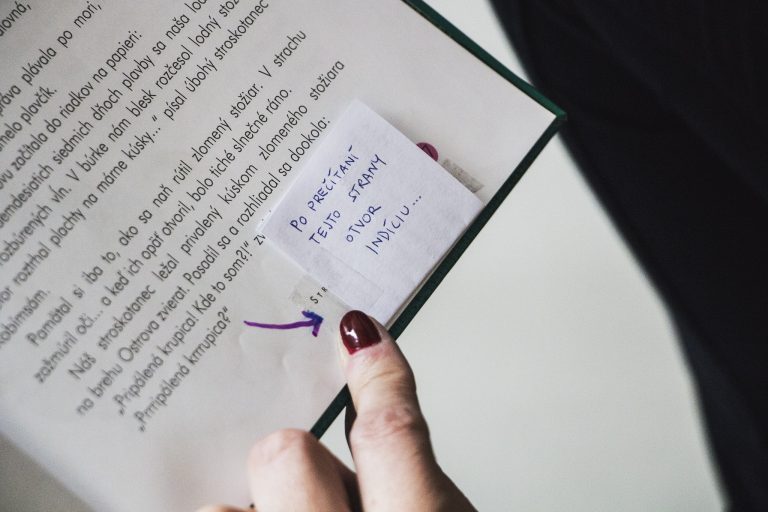 ovná,
práva plávala po mori,
melo plavčík.
vu začítala do riadkov na papieri:
demdesiatich siedmich dňoch plavby sa naša lo
rozbúrených vĺn. V búrke nám blesk rozčesol lodný sto
or roztrhal plachty na márne kúsky..." písal úbohý stroskotanec
obimsám.
Pamätal si iba to, ako sa naň rútil zlomený stožiar. V strachu
zažmúril oči... a keď ich opäť otvoril, bolo tiché slnečné ráno.
Náš stroskotanec ležal privalený kúskom zlomeného stožiara
na brehu Ostrova zvierat. Posadil sa a rozhliadal sa dookola:
„Pripálená krupica! Kde to som?!" zv
„Prrripálená krrrupica?"
PO PREČÍTANÍ
TEJTO STRANY
OTVOR
INDÍCIU...
STR